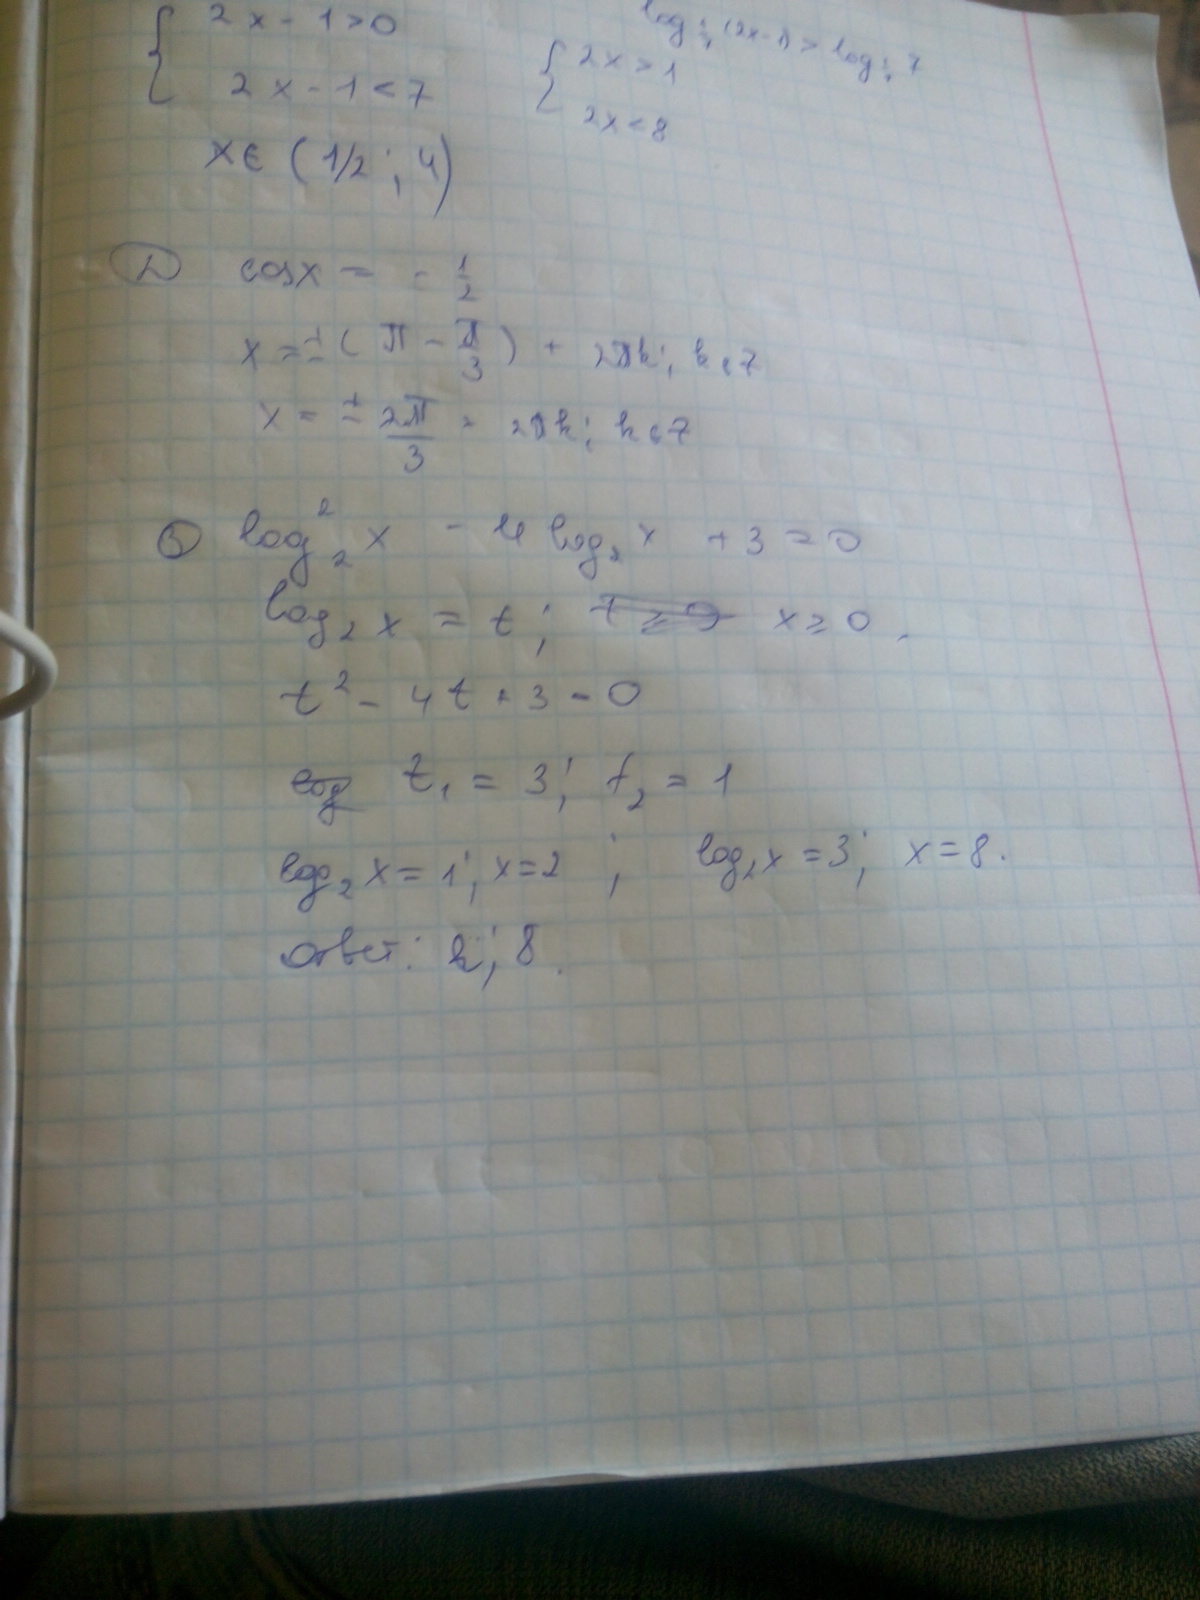 2x - 1 > 0
log (2x-1) > log 7
2x - 1 < 7
2x > 1
2x < 8
x ∈ (1/2 ; 4)
cosx = - 1/2
x = ± ( π - π/3 ) + 2πk ; k ∈ Z
x = ± 2π/3 + 2πk ; k ∈ Z
⑤ log²₂ x - 4 log₂ x + 3 = 0
log₂ x = t ; x ≥ 0 .
t² - 4t + 3 = 0
log t₁ = 3 ; t₂ = 1
log₂ x = 1 ; x = 2 ; log₂ x = 3 ; x = 8 .
Ответ : 2 ; 8 .